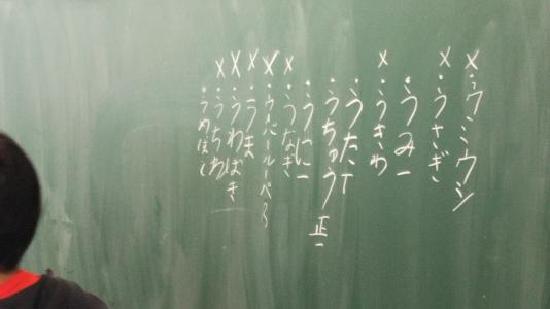 ×・ウミウシ
×・うさぎ
・うみ一
×・うきわ
・うた丅
・うちゅう正一
・うに一
×・うなぎ
×・ウーパールーパー
×・うま
×・うわばき
×・うちわ
・うめぼし